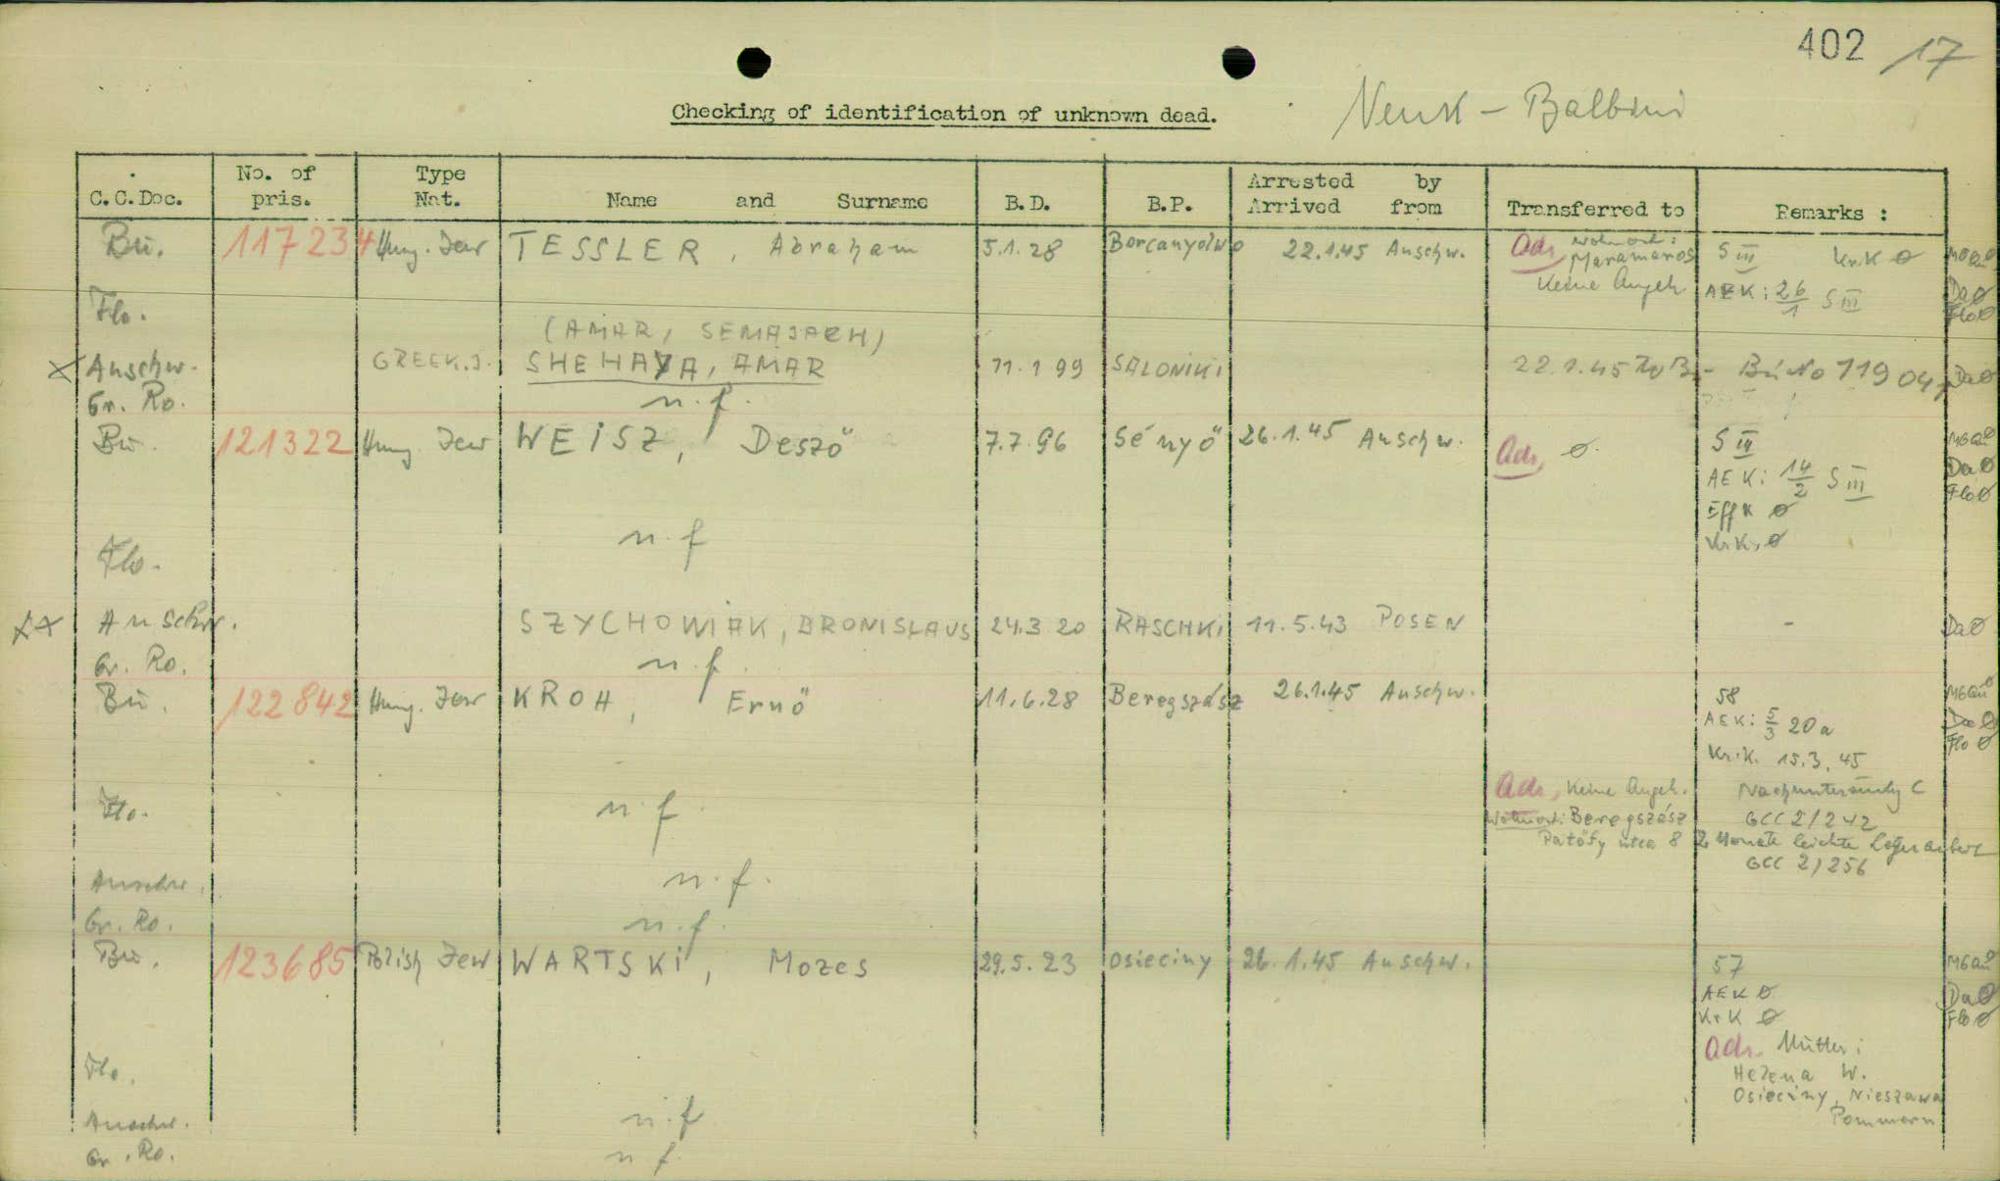 402 17
Checking of identification of unknown dead.
C.C.Doc. No. of pris. Type Nat. Name and Surname B.D. B.P. Arrested by Arrived from Transferred to Remarks :
Bu. 117234 Hung. Jew TESSLER, Abraham 5.1.28 22.1.45 Auschw. Adr. Wohnort: S III Kr.K Ø
Maramaros
Keine Angeh. AEK: 26/1 S III Da Ø
Flo. Flo Ø
(AMAR, SEMAJACH)
X Auschw. GREEK.J. SHEHAYA, AMAR 11.1 99 SALONIKI 22.1.45 - Bu No 11904 Da Ø
Gr. Ro. n.f.
Bu. 121322 Hung. Jew WEISZ, Deszö 7.7.96 Sényö 26.1.45 Auschw. Adr. Ø. S III
AEK: 14/2 S III Da Ø
Flo Ø
Eff K Ø
Kr.K. Ø
Flo. n.f
XX Auschw. SZYCHOWIAK, BRONISLAUS 24.3 20 RASCHKI 11.5.43 POSEN - Da Ø
Gr. Ro. n.f.
Bu. 122842 Hung. Jew KROH, Ernö 11.6.28 Beregszász 26.1.45 Auschw. 58
AEK: 5/3 20a Da Ø
Flo Ø
Kr.K. 15.3.45
Adr. Keine Angeh. C
Flo. n.f Wohnort: Beregszász GCC 2/242
Patöfy utca 8 2 Monate leichte Lagerarbeit
GCC 2/256
Auschw. n.f.
Gr. Ro. n.f.
Bu. 123685 Polish Jew WARTSKI, Mozes 29.5.23 Osieciny 26.1.45 Auschw. 57
AEK Ø Da Ø
KrK Ø Flo Ø
Adr. Mutter:
Flo. Helena W.
Osieciny, Nieszawa
Pommern
Auschw. n.f
Gr. Ro. n f.